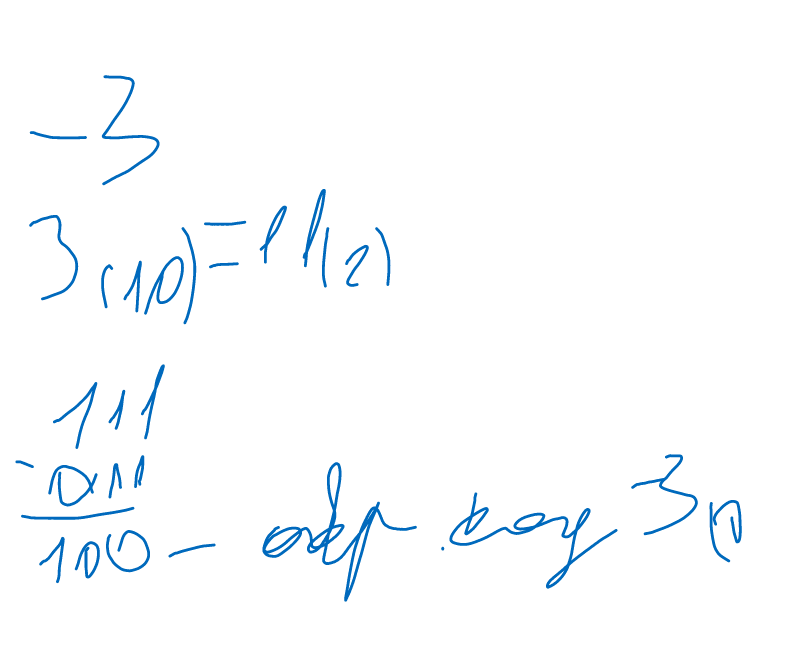 -3
3(10)=11(2)
111
-011
100 - обр. код -3(1